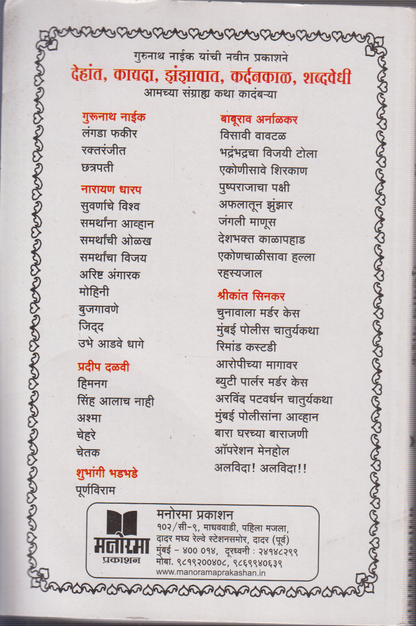 गुरुनाथ नाईक यांची नवीन प्रकाशने
देहांत, कायदा, झंझावात, कर्दनकाळ, शब्दवेधी
आमच्या संग्राह्य कथा कादंबऱ्या
गुरूनाथ नाईक
लंगडा फकीर
रक्तरंजीत
छत्रपती
नारायण धारप
सुवर्णाचे विश्व
समर्थांना आव्हान
समर्थांची ओळख
समर्थांचा विजय
अरिष्ट अंगारक
मोहिनी
बुजगावणे
जिद्द
उभे आडवे धागे
प्रदीप दळवी
हिमनग
सिंह आलाच नाही
अश्मा
चेहरे
चेतक
शुभांगी भडभडे
पूर्णविराम
बाबूराव अर्नाळकर
विसावी वावटळ
भद्रंभद्रचा विजयी टोला
एकोणीसावे शिरकाण
पुष्पराजाचा पक्षी
अफलातून झुंझार
जंगली माणूस
देशभक्त काळापहाड
एकोणचाळीसावा हल्ला
रहस्यजाल
श्रीकांत सिनकर
चुनावाला मर्डर केस
मुंबई पोलीस चातुर्यकथा
रिमांड कस्टडी
आरोपीच्या मागावर
ब्युटी पार्लर मर्डर केस
अरविंद पटवर्धन चातुर्यकथा
मुंबई पोलीसांना आव्हान
बारा घरच्या बाराजणी
ऑपरेशन मेनहोल
अलविदा! अलविदा!!
मनोरमा
प्रकाशन
मनोरमा प्रकाशन
१०२/सी-९, माधववाडी, पहिला मजला,
दादर मध्य रेल्वे स्टेशनसमोर, दादर (पूर्व)
मुंबई - ४०० ०१४, दूरध्वनी : २४१४८२९९
मोबा. ९८१९२००४०८, ९८६९९४०६३९
www.manoramaprakashan.in